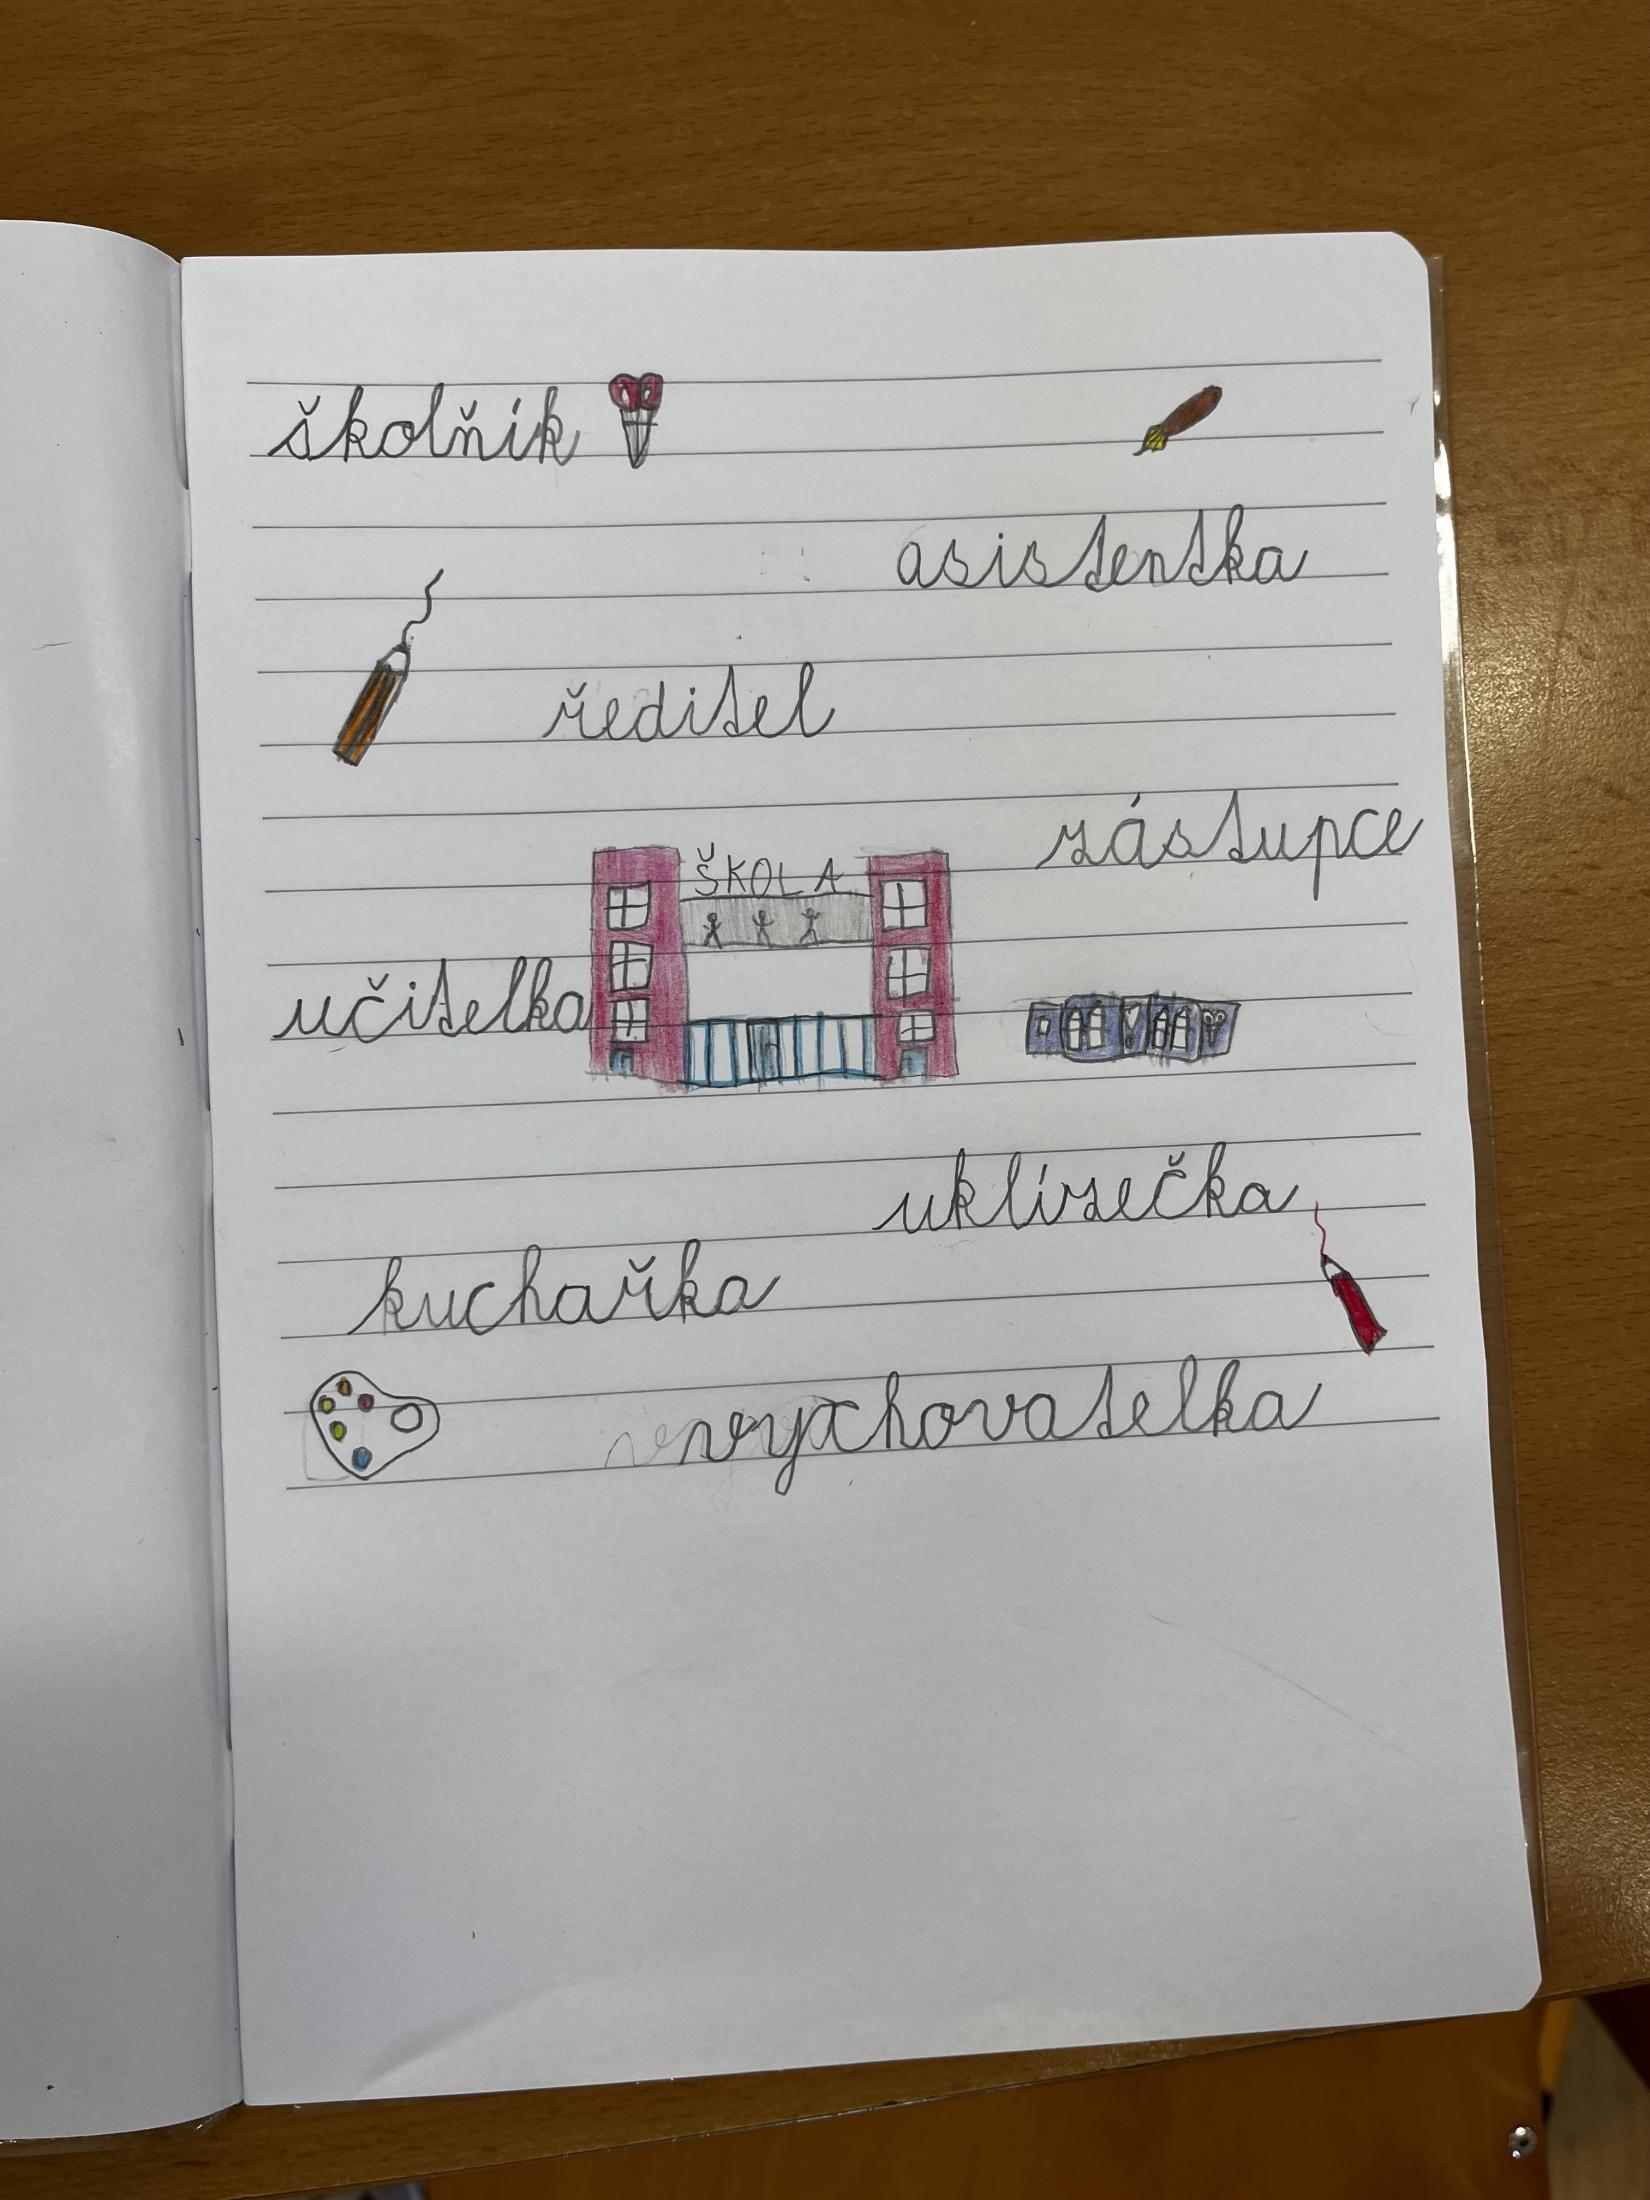 školňík
asistentka
ředitel
zástupce
ŠKOLA
učitelka
uklízečka
kuchařka
vychovatelka